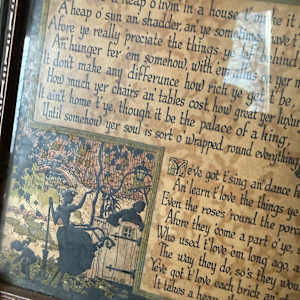 heap o' livin' in a house t' make it
A heap o' sun an' shadder, an' ye sometimes have t'
Afore ye really 'preciate the things ye lef' behind
An' hunger fer 'em somehow, with 'em allus on yer
It don't make any differunce how rich ye get t' be,
How much yer chairs an' tables cost, how great yer luxury
It ain't home t' ye, though it be the palace of a king,
Until somehow yer soul is sort o' wrapped round everything
Ye've got t' sing an' dance
An' learn t' love the things ye
Even the roses 'round the porch
Afore they come a part o' ye,
Who used t' love 'em long ago, an
The way they do, so's they would
Ye've got t' love each brick an'
It takes a heap